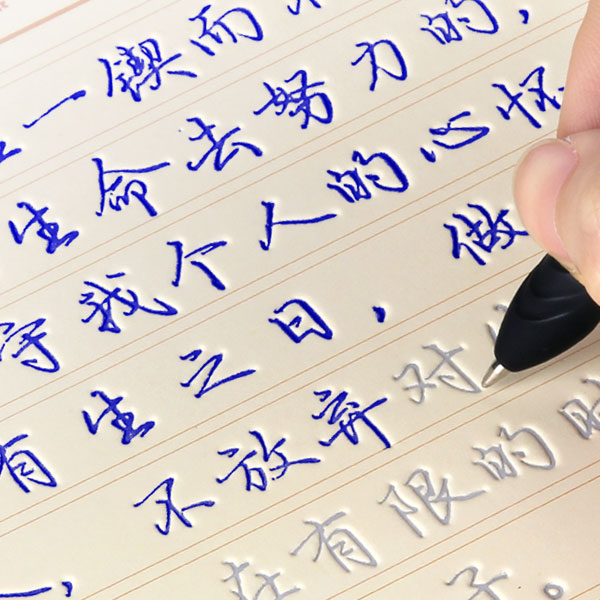 一锲而
生命去努力的，
守我个人的心怀
有生之日，做
，不放弃对
在有限的时
子。